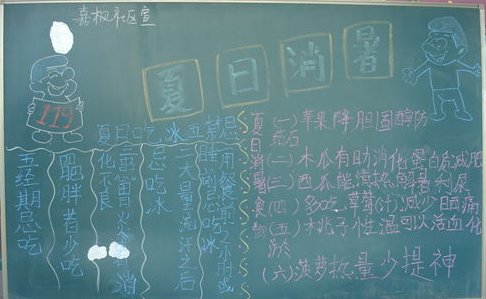 嘉枫社区宣
119
夏日消暑
夏日吃冰五禁忌
用餐前2小时或
忌吃冰
二大量流汗之后
忌吃冰
三肠胃炎者消
化不良
四肥胖者少吃
五经期忌吃
夏日消暑食物
(一)苹果降胆固醇防
结石
(二)木瓜有助消化蛋白质减肥
(三)西瓜能清热解暑利尿
(四)多吃草莓(汁)减少痛
(五)桃子性温可以活血化
瘀
(六)菠萝热量少提神